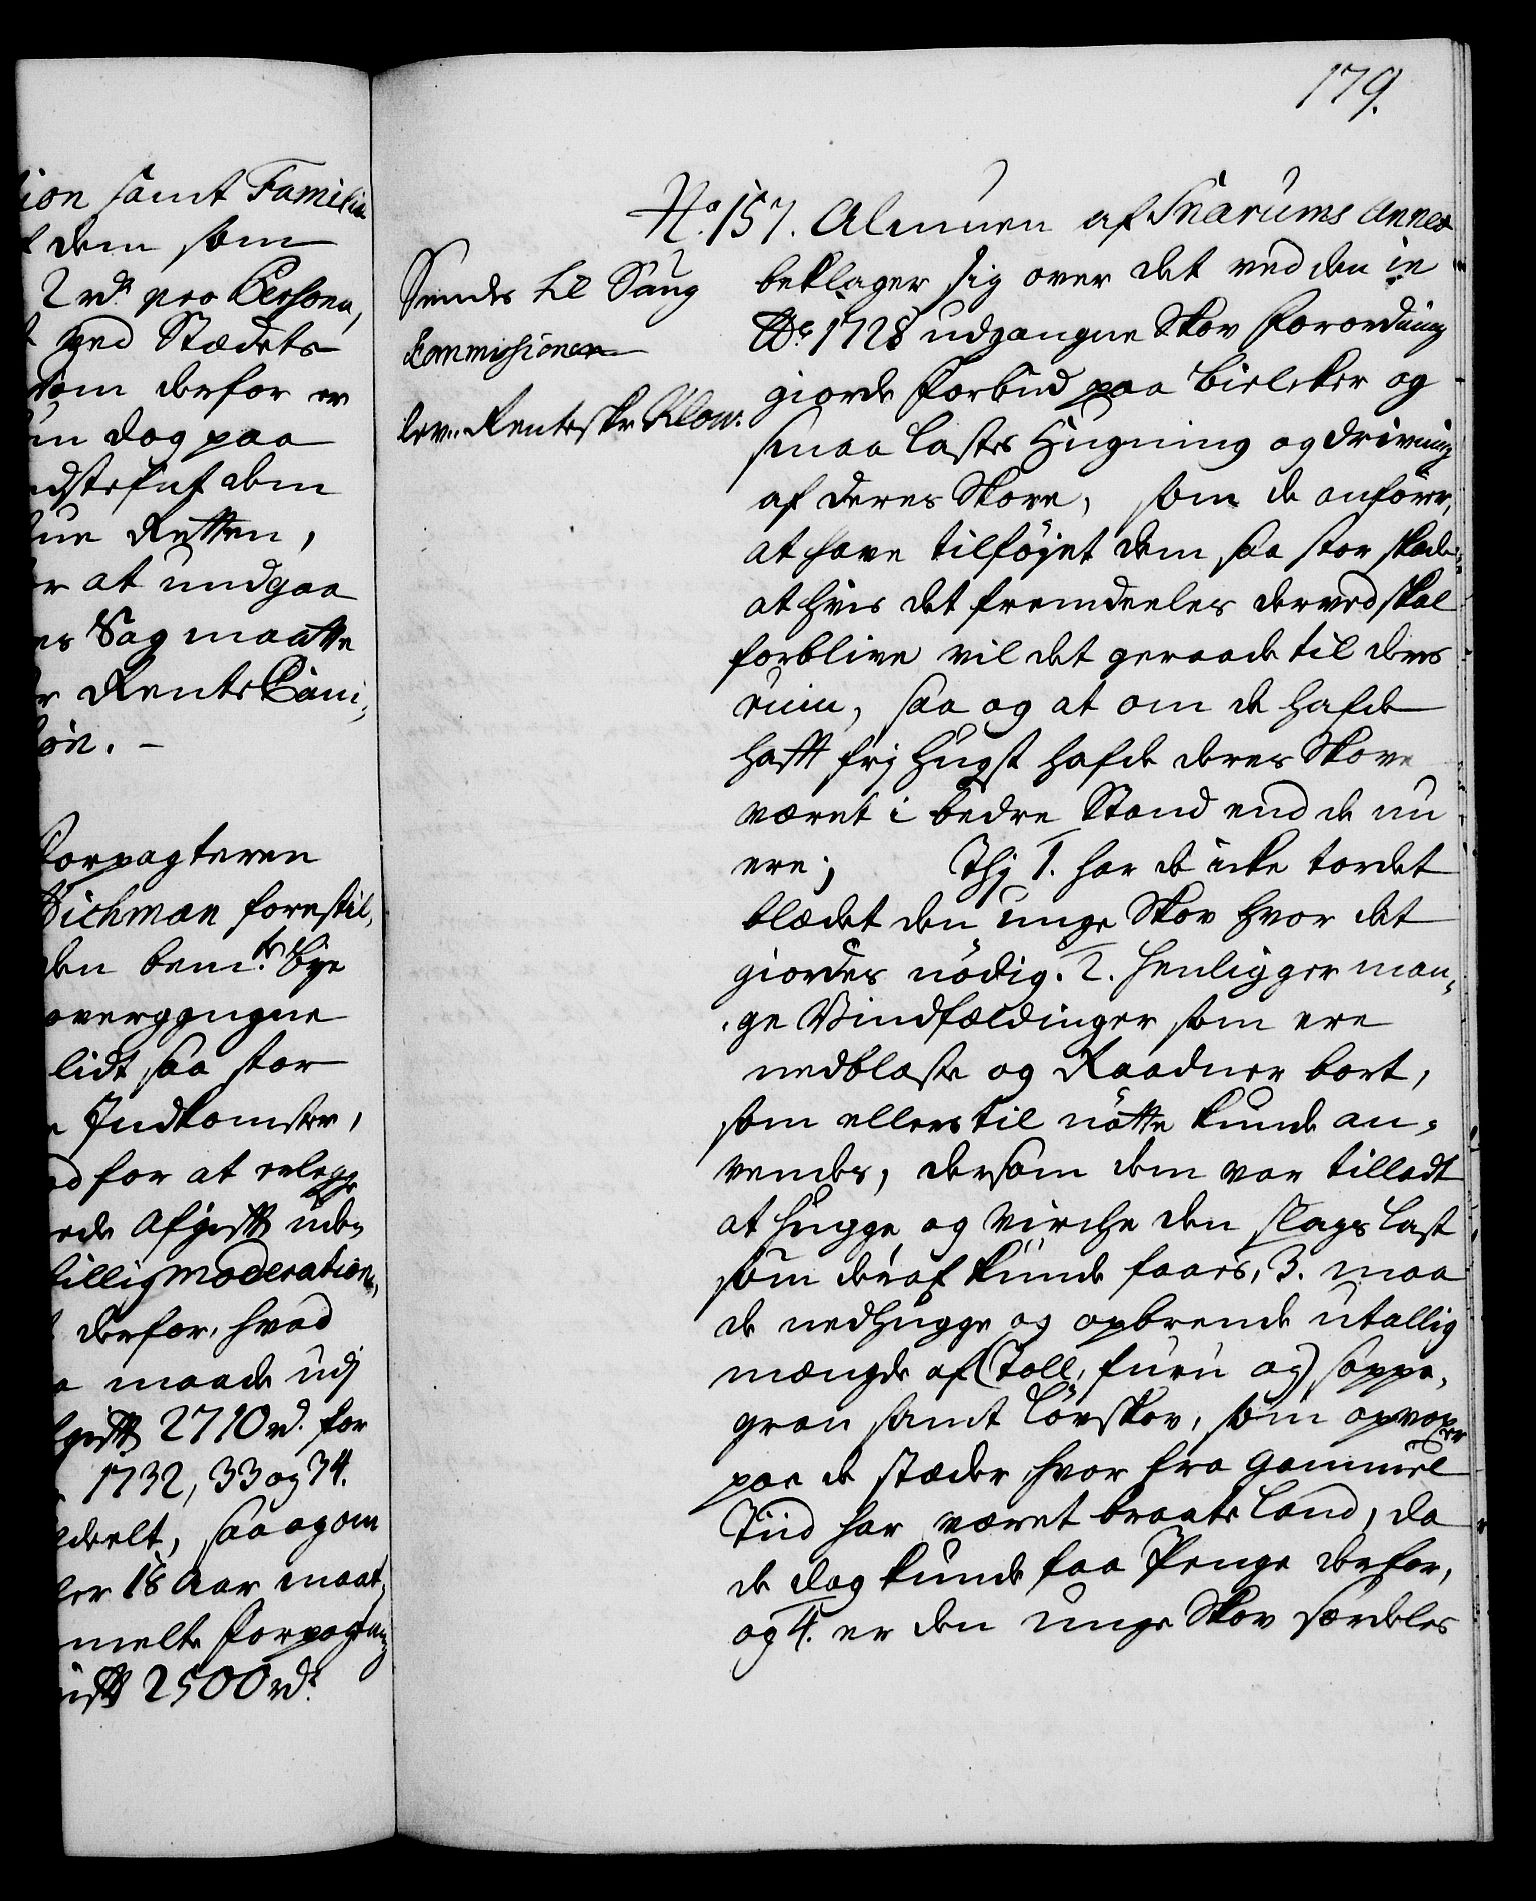 ion samt Familie
dem som
2 rd. pro Persona,
ved Stædets
som derfor er
dog paa
dem
Retten,
at undgaa
Sag maatte
Rente Cam¬

Forpagteren
Wichman forestil,
den bem.te Bye
overgangne
lidt saa stor
Indkomster,
for at erlegge
Afgift uden
billig moderation,
derfor, hvad
maade udj
Afgift 2710 rd. for
1732, 33 og 34.
deelt, saa og om
18 Aar maat,
melte Forpagtning
2500 rd.
179.
No. 157. Almuen af Snarums Annex
beklager sig over det ved den in
Ao. 1728 udgangne Skov Forordning
giorde Forbud paa Bielcker og
smaa Lastes Hugning og drivning
af deres Skove, som de anfører,
at have tilføjet dem saa stor skade
at hvis det fremdeeles derved skal
forblive vil det geraade til deres
ruin, saa og at om de hafde
hafft frj Hugst hafde deres Skove
været i bedre Stand end de nu
ere; Thj 1. har de icke tordet
blædet den unge Skov hvor det
giordes nödig. 2. henligger man¬
ge Vindfældinger som ere
nedblæste og Raadner bort,
som ellers til nötte kunde an¬
vendes, dersom dem var tilladt
at hugge og Virche den slags last
som deraf kunde faaes, 3. maa
de nedhugge og opbrende utallig
mængde af (Toll, furu og) soppe,
gran samt Løvskov, som opvoxer
paa de stæder hvor fra Gammel
Tiid har været braate Land, da
de dog kunde faa Penge derfor,
og 4. er den unge Skov særdeles
Sendes til Saug
Commissionen
lev. Renteskr. Klow.